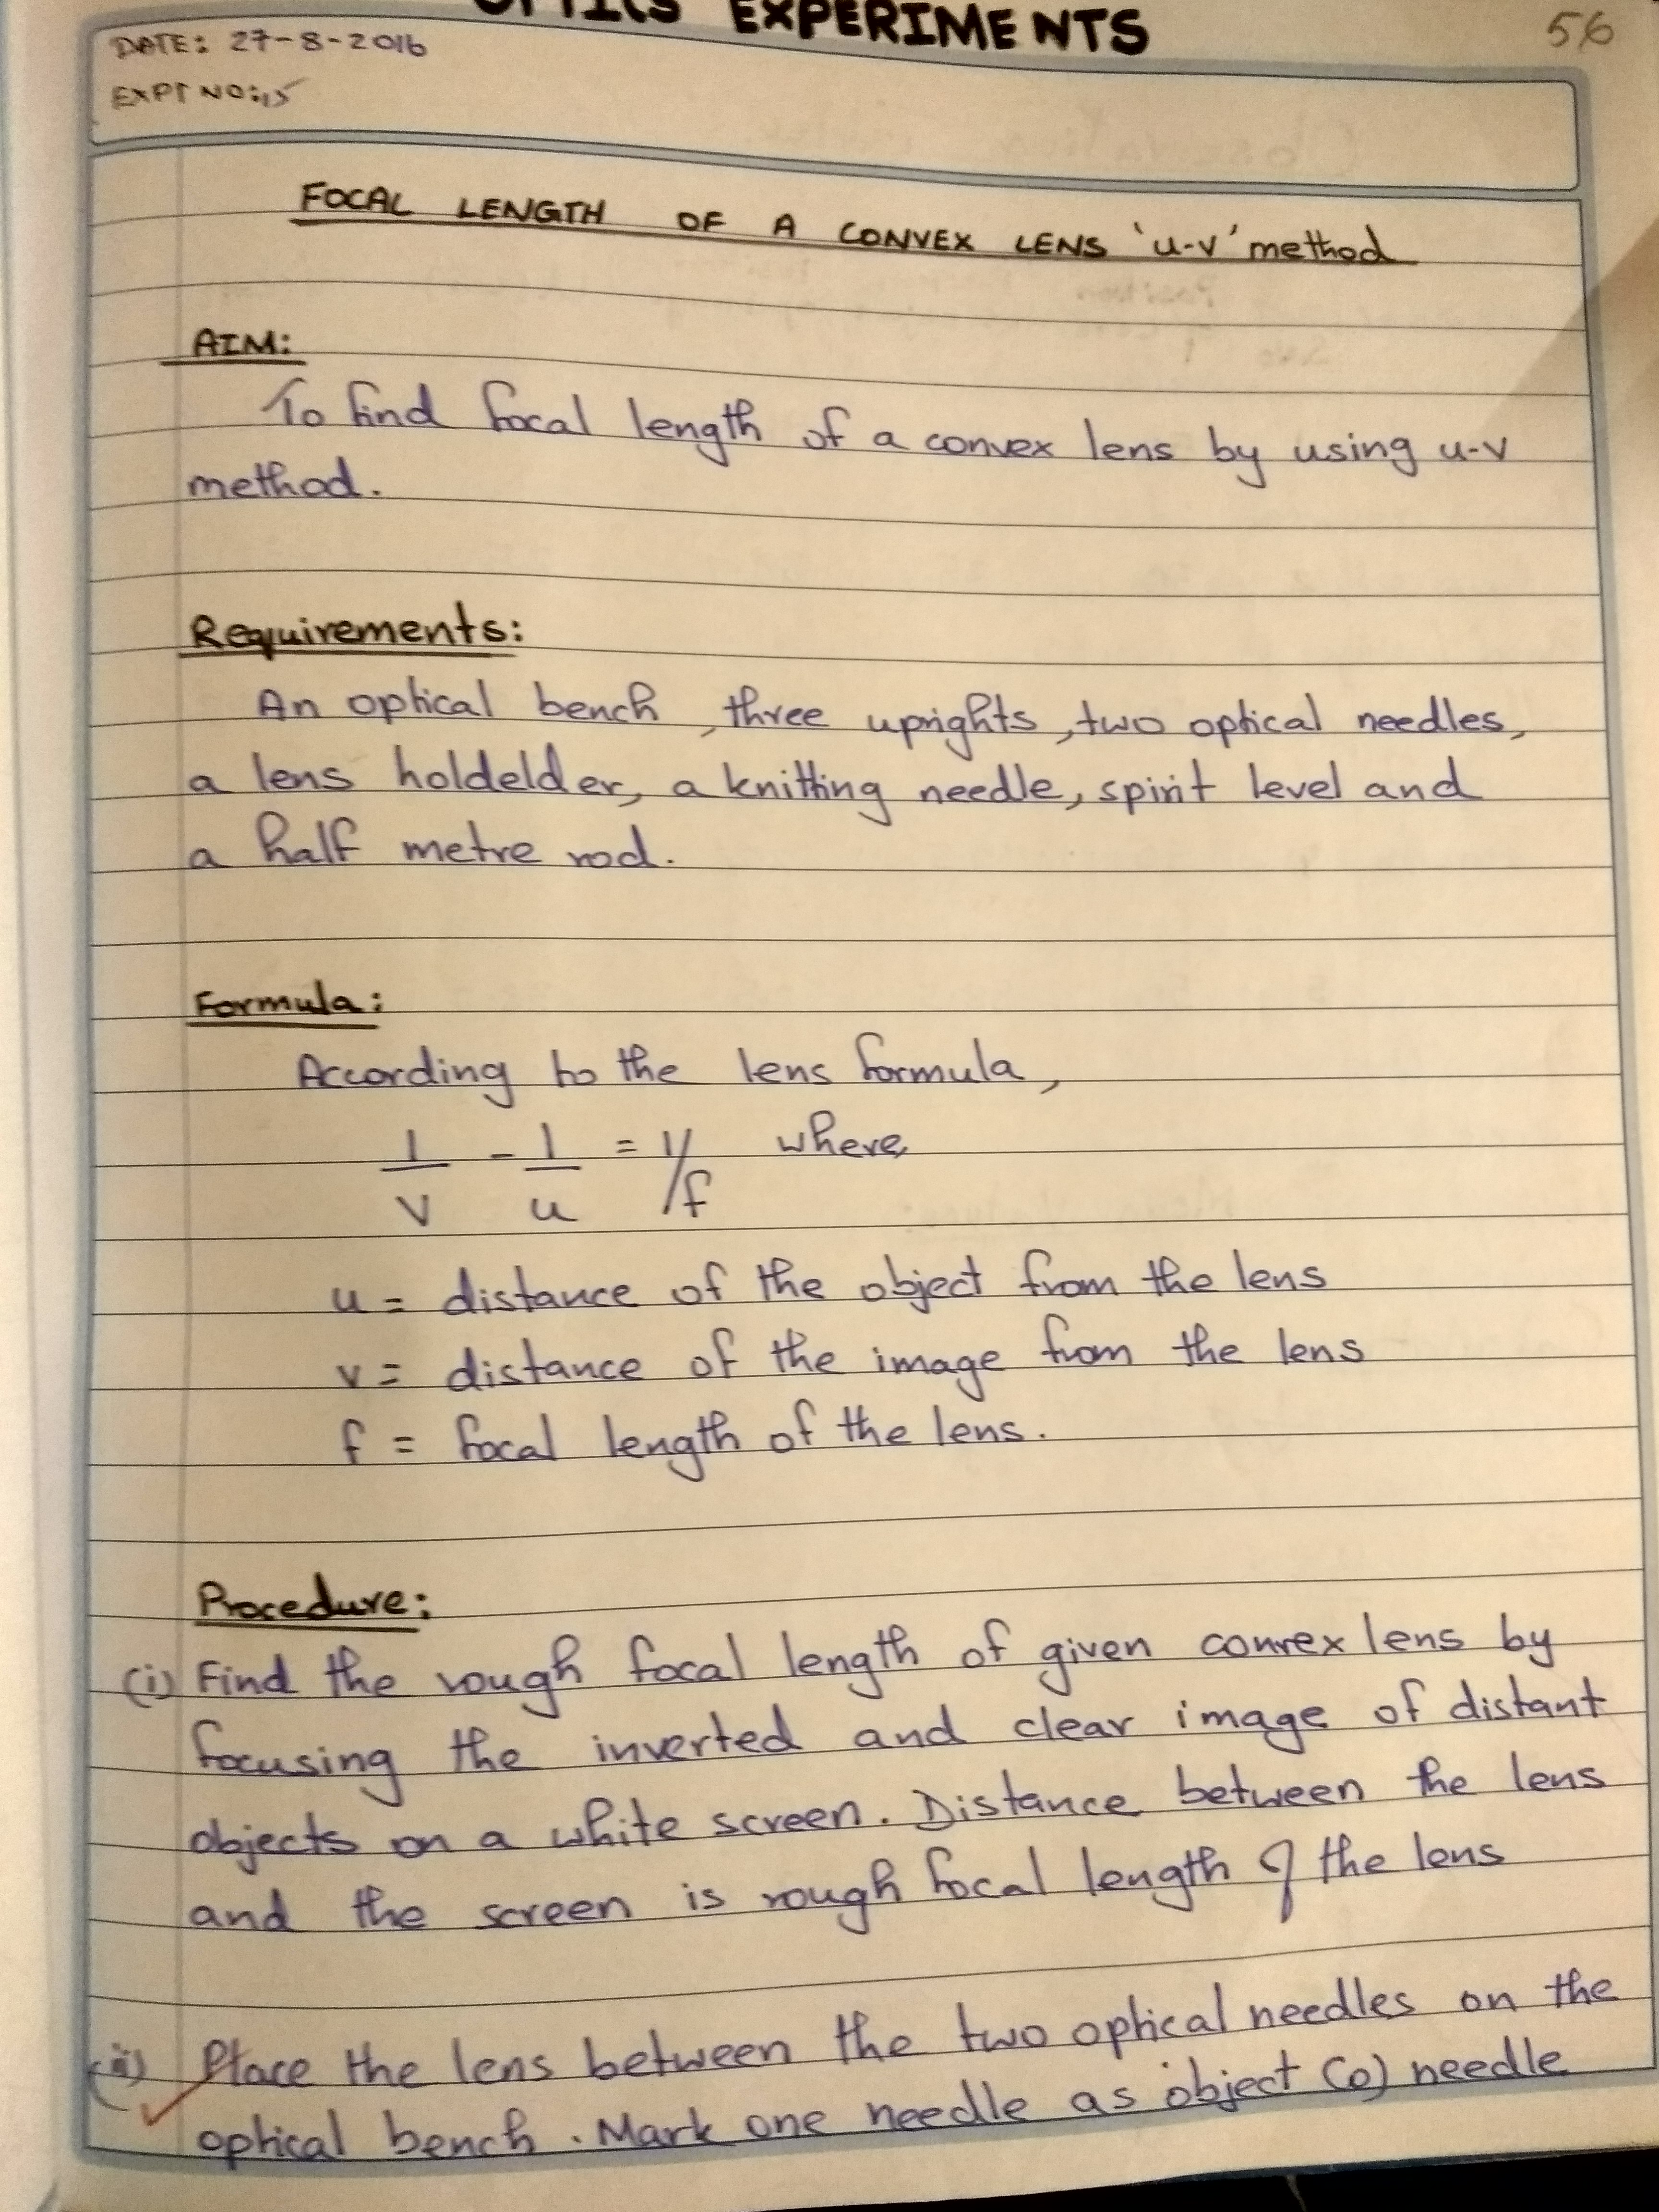 OPTICS EXPERIMENTS
56
DATE: 27-8-2016
EXPT NO:15
FOCAL LENGTH OF A CONVEX LENS 'u-v' method
AIM:
To find focal length of a convex lens by using u-v
method.
Requirements:
An optical bench, three uprights, two optical needles,
a lens holdelder, a knitting needle, spirit level and
a half metre rod.
Formula:
According to the lens formula,
1/v - 1/u = 1/f where,
u = distance of the object from the lens
v = distance of the image from the lens
f = focal length of the lens.
Procedure:
(i) Find the rough focal length of given convex lens by
focusing the inverted and clear image of distant
objects on a white screen. Distance between the lens
and the screen is rough focal length of the lens
(ii) Place the lens between the two optical needles on the
optical bench. Mark one needle as object (o) needle